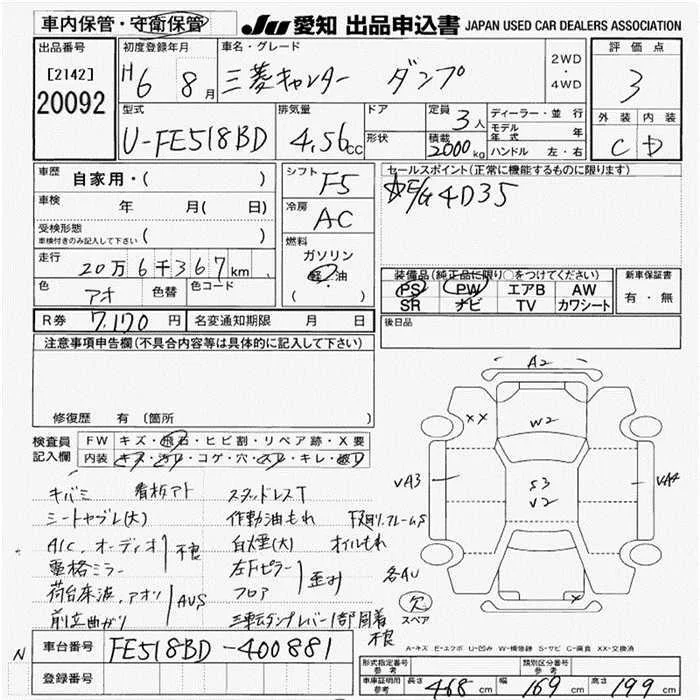 車内保管・守衛保管
JU 愛知 出品申込書 JAPAN USED CAR DEALERS ASSOCIATION
出品番号
[2142]
20092
初度登録年月
H6 8月
車名・グレード
三菱キャンター ダンプ
2WD
・
4WD
評価点
3
外装 内装
C D
型式
U-FE518BD
排気量
4,56cc
ドア
形状
定員
3人
積載
2000kg
ディーラー・並行
モデル年式 年
ハンドル 左・右
車歴
自家用・( )
車検
年 月( 日)
受検形態
車検付きのみ記入して下さい ( )
走行
20万6千367km
色
アオ
色替
色コード
シフト
F5
冷房
AC
燃料
ガソリン
軽・油
( )
セールスポイント(正常に機能するものに限ります)
E/G 4D35
装備品(純正品に限り○をつけてください)
PS PW エアB AW
SR ナビ TV カワシート
新車保証書
有・無
R券 7,170円
名変通知期限 月 日
後日品
注意事項申告欄(不具合内容等は具体的に記入して下さい)
修復歴 有(箇所 )
検査員記入欄
FW キズ・飛石・ヒビ割・リペア跡・X要
内装 キズ・汚レ・コゲ・穴・スレ・キレ・破レ
キバミ 看板アト スタッドレスT
シートヤブレ(大) 作動油もれ 下廻り、フレームS
A/C、オーディオ 不良 白煙(大) オイルもれ
電格ミラー 左Fピラー 歪み
荷台床波、アオリ AUS フロア
前立曲がり 三転ダンプレバー1部固着
不良
A2
XX
W2
VA3
S3
V2
VA4
各AU
欠
スペア
X
A-キズ E-エクボ U-凹み W-補修跡 S-サビ C-腐食 XX-交換済
N
車台番号 FE518BD-400881
登録番号
形式指定番号
参考
類別区分番号
参考
車庫証明用
参考
長さ 468cm 幅 169cm 高さ 199cm